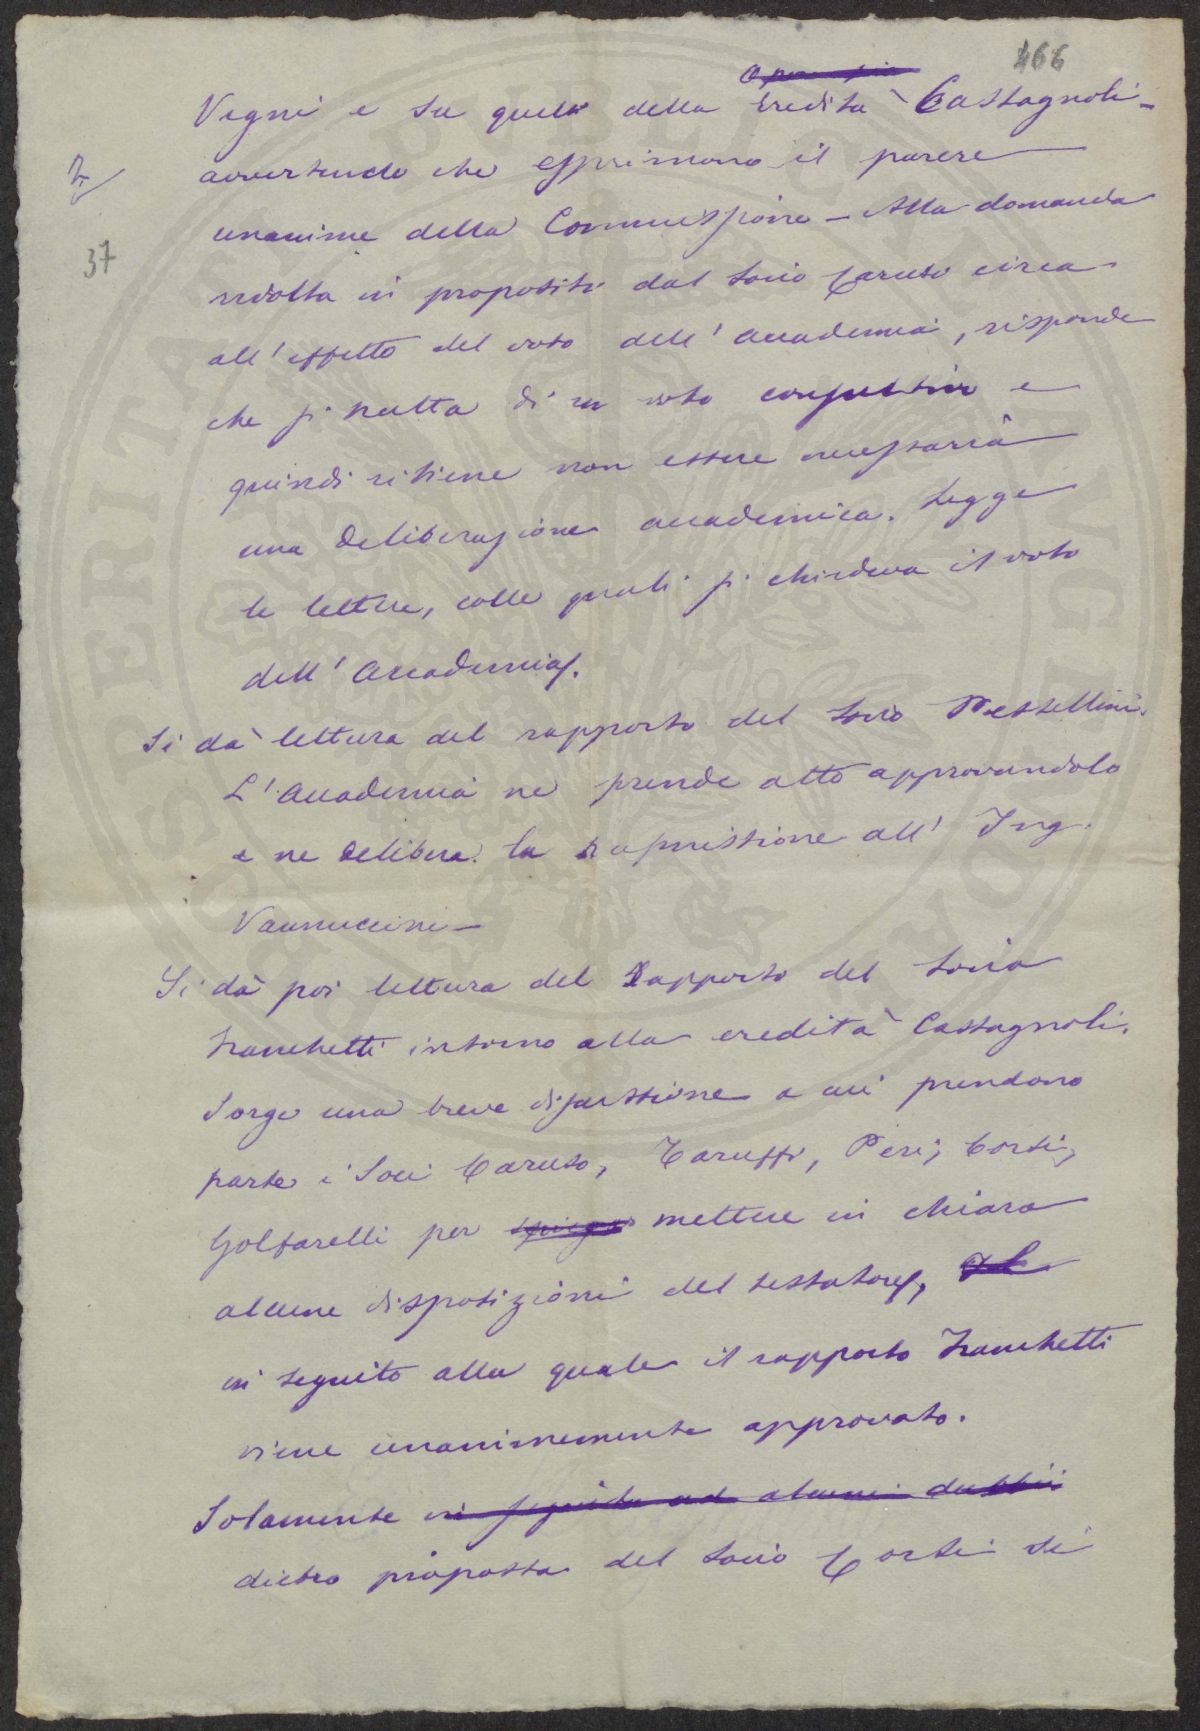 466
Opera pia
Vegni e su quella della Eredità Castagnoli -
avvertendo che esprimono il parere
2
unanime della Commissione - Alla domanda
37
rivolta in proposito dal Socio Caruso circa
all'effetto del voto dell'Accademia, risponde
che si tratta di un voto consultivo e
quindi ritiene non essere necessaria
una deliberazione accademica. Legge
le lettere, colle quali si chiedeva il voto
dell'Accademia.
Si dà lettura del rapporto del Socio Pestellini.
L'Accademia ne prende atto approvandolo
e ne delibera la trasmissione all'Ing.
Vannuccini -
Si dà poi lettura del Rapporto del Socio
Franchetti intorno alla eredità Castagnoli.
Sorge una breve discussione a cui prendono
parte i Soci Caruso, Taruffi, Peri, Corsi,
Golfarelli per mettere in chiaro
alcune disposizioni del testatore,
in seguito alla quale il rapporto Franchetti
viene unanimemente approvato.
Solamente in seguito ad alcuni dubbii
dietro proposta del Socio Corsi si